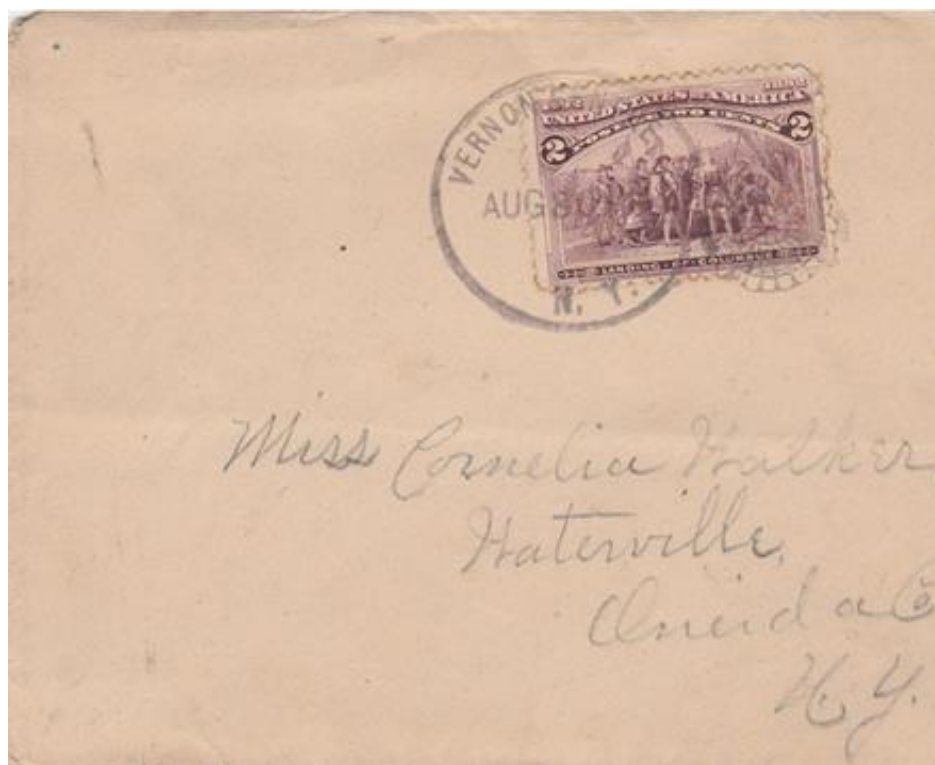 VERNON
AUG 30
N. Y.
1492 1892
UNITED STATES OF AMERICA
POSTAGE TWO CENTS
2 2
LANDING OF COLUMBUS
Miss Cornelia Walker
Waterville,
Oneida Co
N. Y.